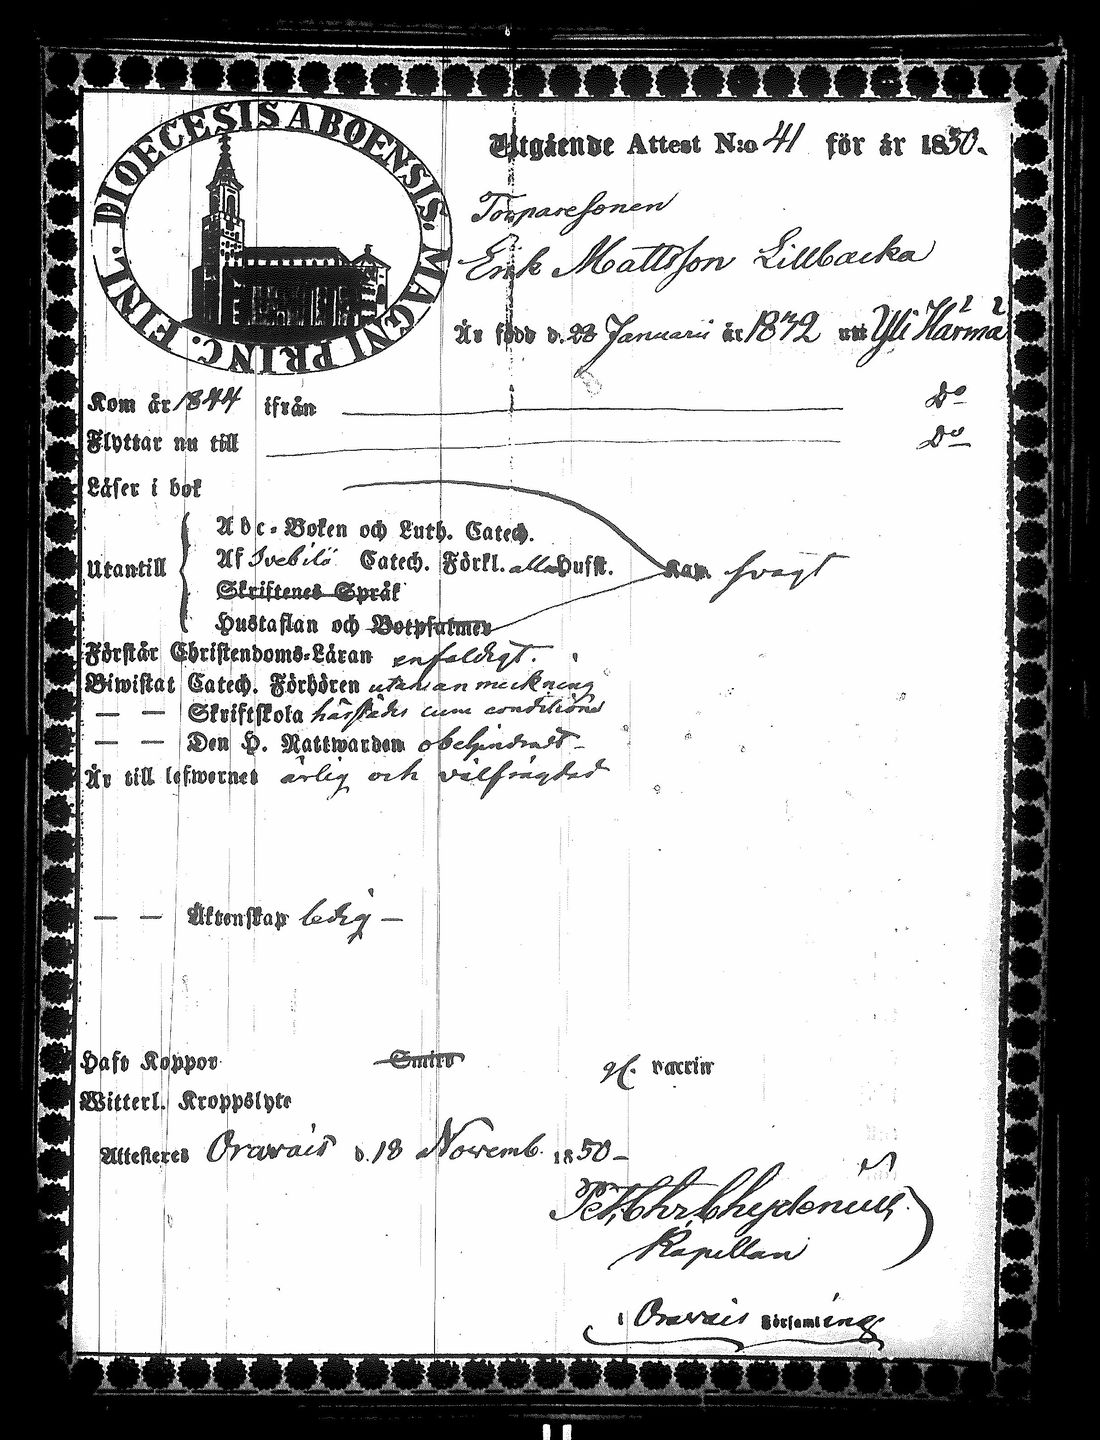 DIOECESIS ABOENSIS. MAGNI PRINC. FINL.
Utgående Attest N:o 41 för år 1850.
Torparesonen
Erik Mattsson Lillbacka
Är född d. 28 Januarii år 1832 uti Yli Härmä
Kom år 1844 ifrån Do
Flyttar nu till Do
Läser i bok
Utantill
Abc-Boken och Luth. Catech.
Af Svebilii Catech. Förkl. alla Hufst. Kap. svagt
Skriftenes Språk
Hustaflan och Botpsalmer
Förstår Christendoms-Läran enfaldigt.
Biwistat Catech. Förhören utan anmerkning
— — Skriftskola härstädes cum conditione
— — Den H. Nattwarden obehindradt –
Är till lefwernet ärlig och välfrägdad
— — Äktenskap ledig –
Haft Koppor Smitt gl. vaccin
Witterl. Kroppslyte
Attesteres Oravais d. 18 Novemb. 1850 –
Pet. Chr. Chydenius
Kapellan
i Oravais Församling